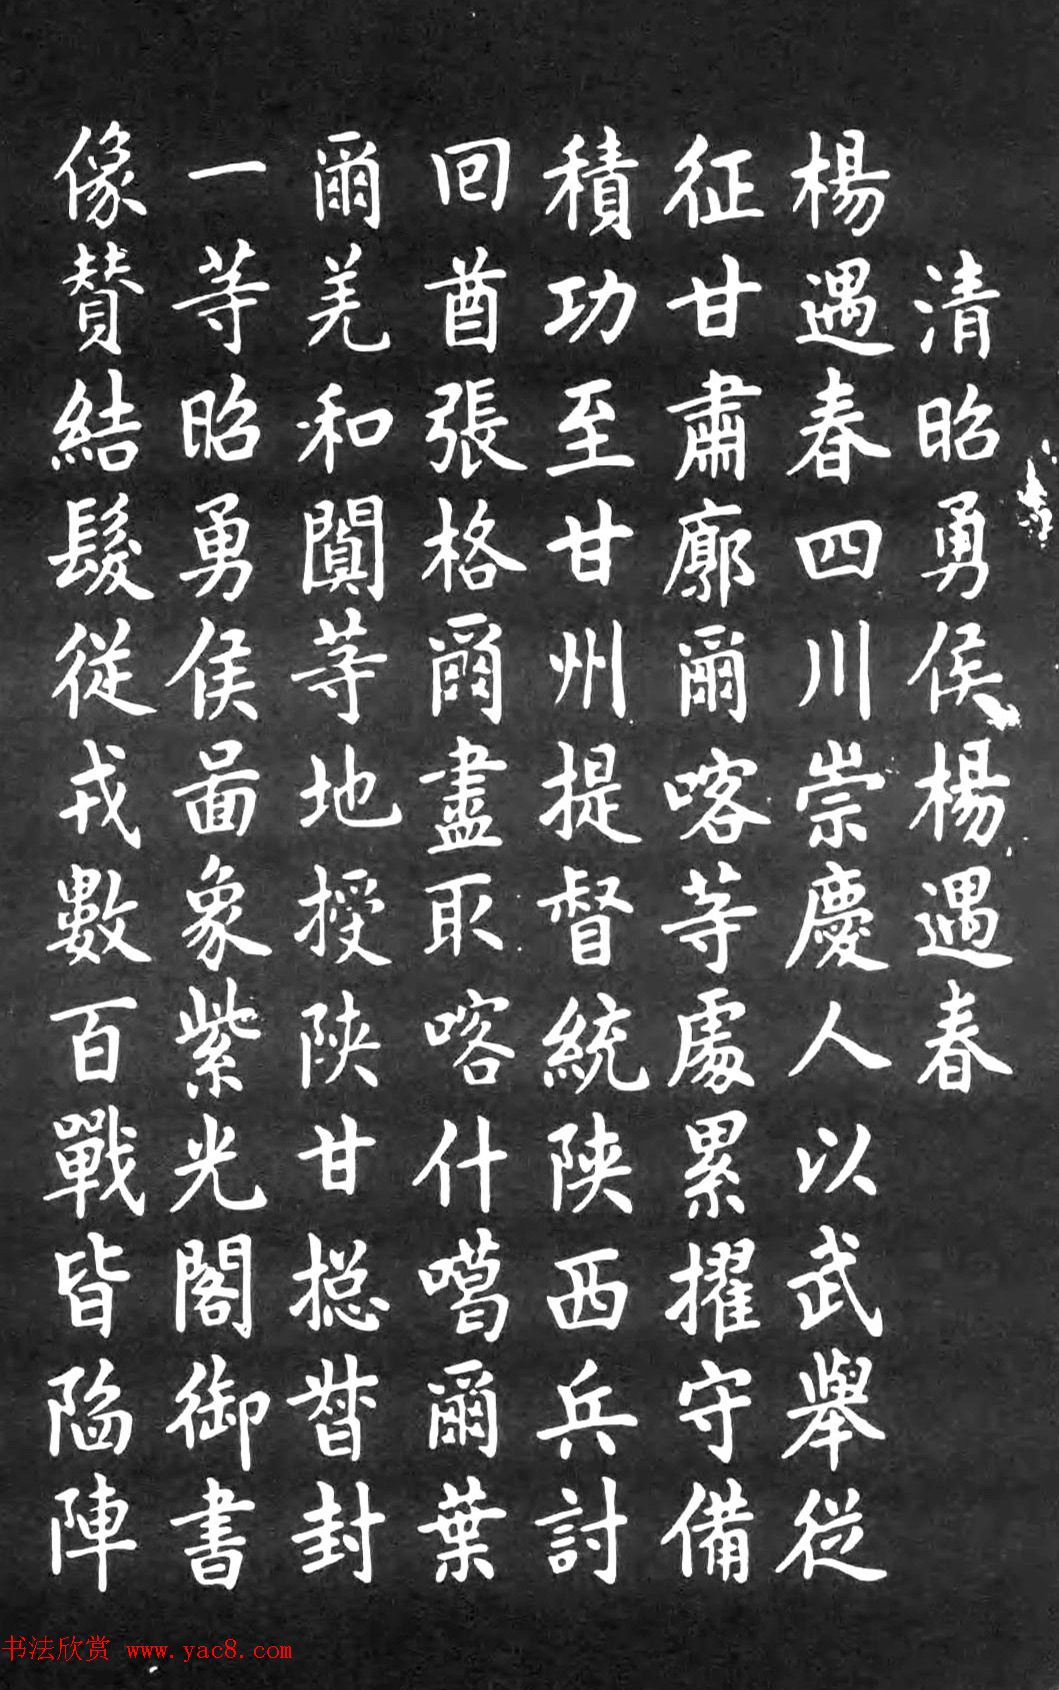 清昭勇侯楊遇春
楊遇春四川崇慶人以武舉從
征甘肅廓爾喀等處累擢守備
積功至甘州提督統陝西兵討
回酋張格爾盡取喀什噶爾葉
爾羌和闐等地授陝甘總督封
一等昭勇侯啚象紫光閣御書
像贊結髮從戎數百戰皆陷陣
书法欣赏 www.yac8.com